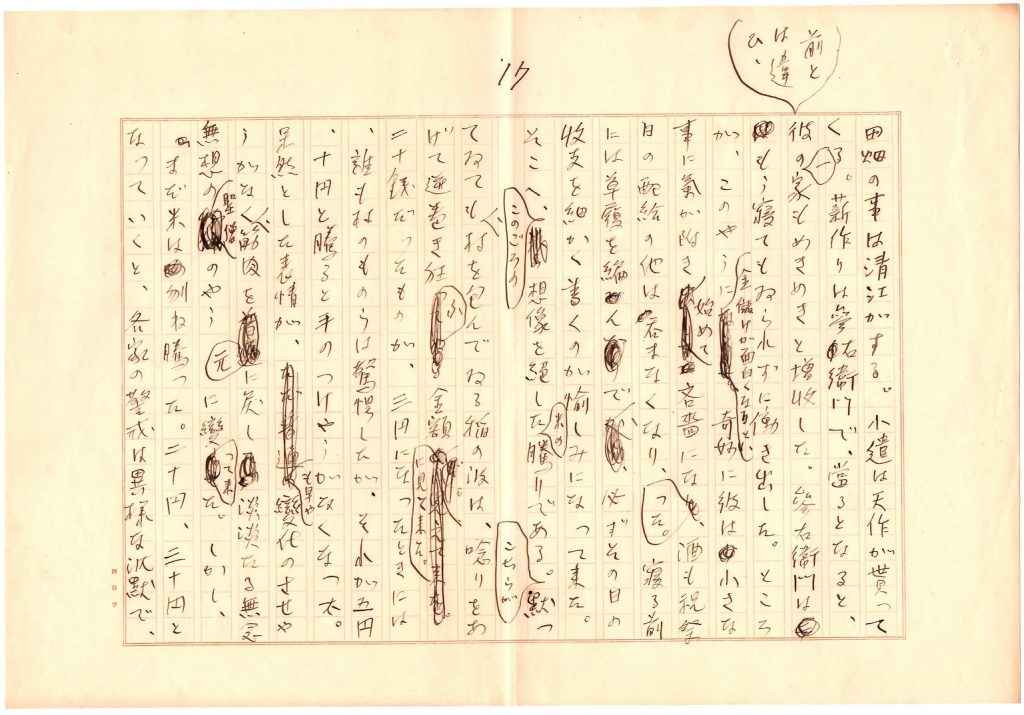 17
前と
は違
ひ、
田畑の事は清江がする。小遣は天作が貰って
くる。薪作りは參右衛門で、當るとなると、
彼の家もめきめきと増收した。參右衛門は
もう寢てもゐられずに働き出した。ところ
が、このやうに金儲けが面白くなるとともに奇妙に彼は小さな
事に氣が附き始めて吝嗇になり、酒も祝祭
日の配給の他は呑まなくなり、つた。寢る前
には草履を編んで、必ずその日の
收支を細かく書くのが愉しみになって来た。
そこへ、このごろの想像を絶した米の騰りである。こちらが默つ
てゐても村を包んでゐる稲の波は、唸りをあ
げて逆巻き狂ふ金額に見えて来た。
二十錢だったものが、三円になったときには
、誰も村のものらは驚愕したが、それが五円
、十円と騰ると手のつけやうがなくなつた。
呆然とした表情が、も早や變化のさせや
うがなく、筋肉を元に戻し淡淡たる無念
無想の聖僧のやうに變って来た。しかし、
まだ米は刎ね騰った。二十円、三十円と
なっていくと、各家の警戒は異様な沈默で、